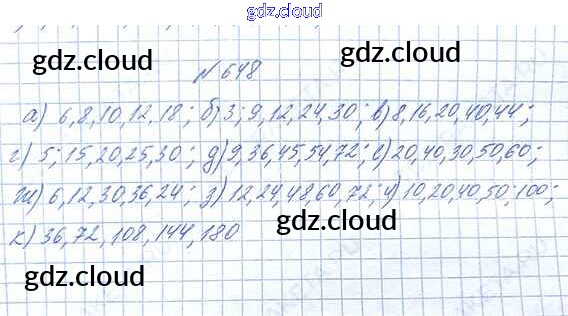 gdz.cloud
gdz.cloud gdz.cloud
№ 648
а) 6,8,10,12,18; б) 3; 9,12,24,30; в) 8,16,20,40,44;
gdz.cloud gdz.cloud
г) 5; 15,20,25,30; д) 9,36,45,54,72; е) 20,40,30,50,60;
ж) 6,12,30,36,24; з) 12,24,48,60,72; и) 10,20,40,50,100;
к) 36,72,108,144,180
gdz.cloud gdz.cloud